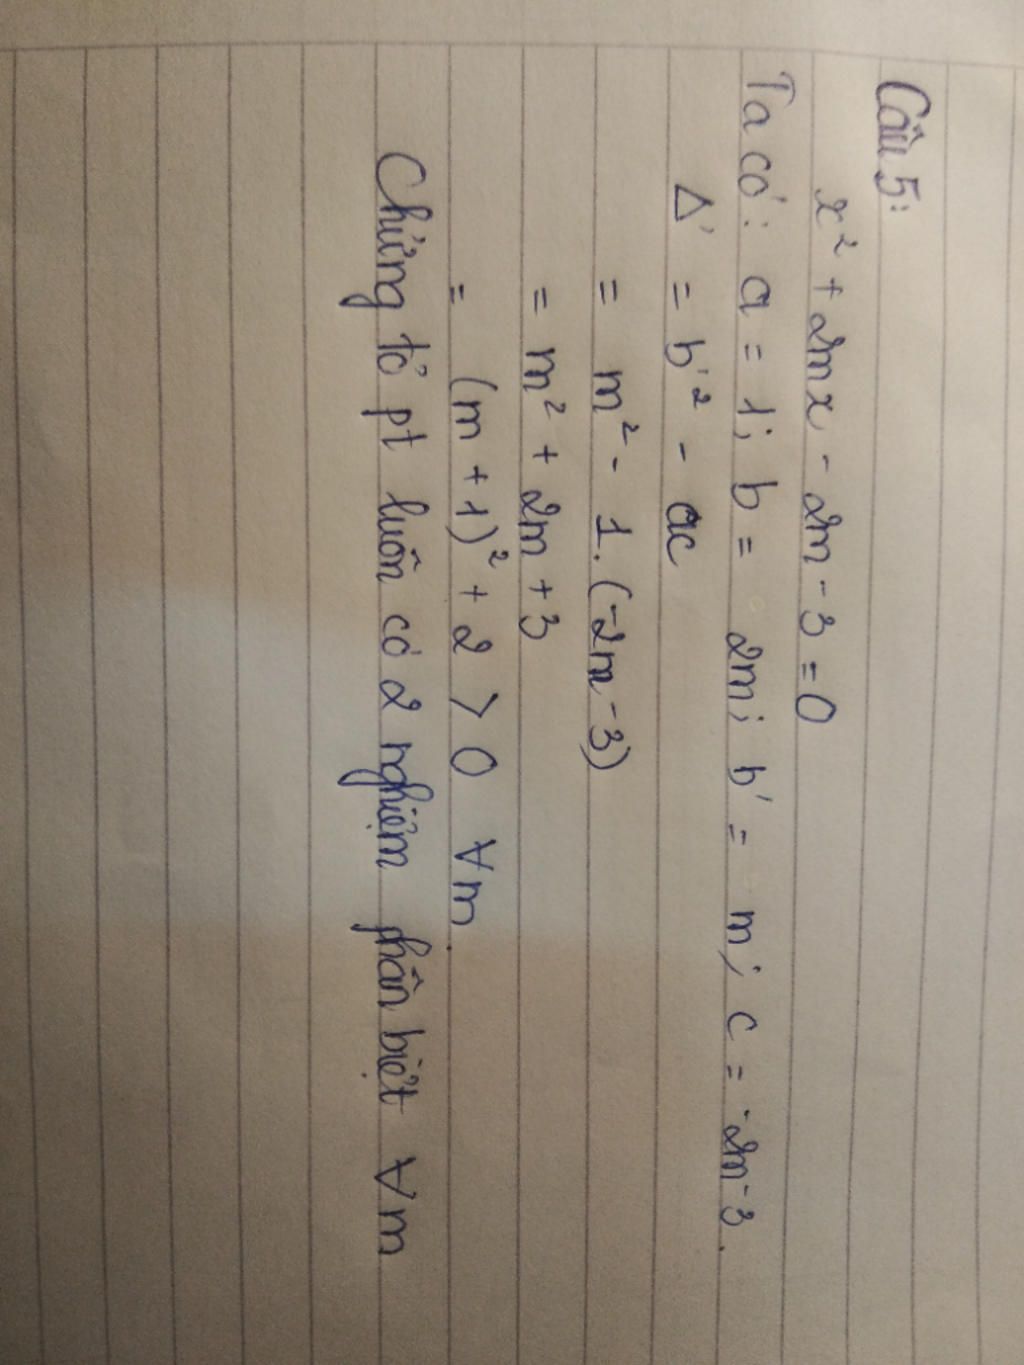 Câu 5:
x² + 2mx - 2m - 3 = 0
Ta có: a = 1; b = 2m; b' = m; c = -2m-3.
Δ' = b'² - ac
= m² - 1.(-2m-3)
= m² + 2m + 3
= (m + 1)² + 2 > 0 ∀m.
Chứng tỏ pt luôn có 2 nghiệm phân biệt ∀m